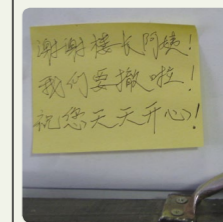 谢谢楼长阿姨!
我们要撤啦!
祝您天天开心!